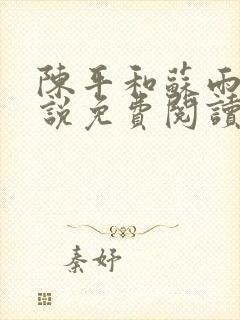 陳平和蘇雨
說免費閱讀
秦妤